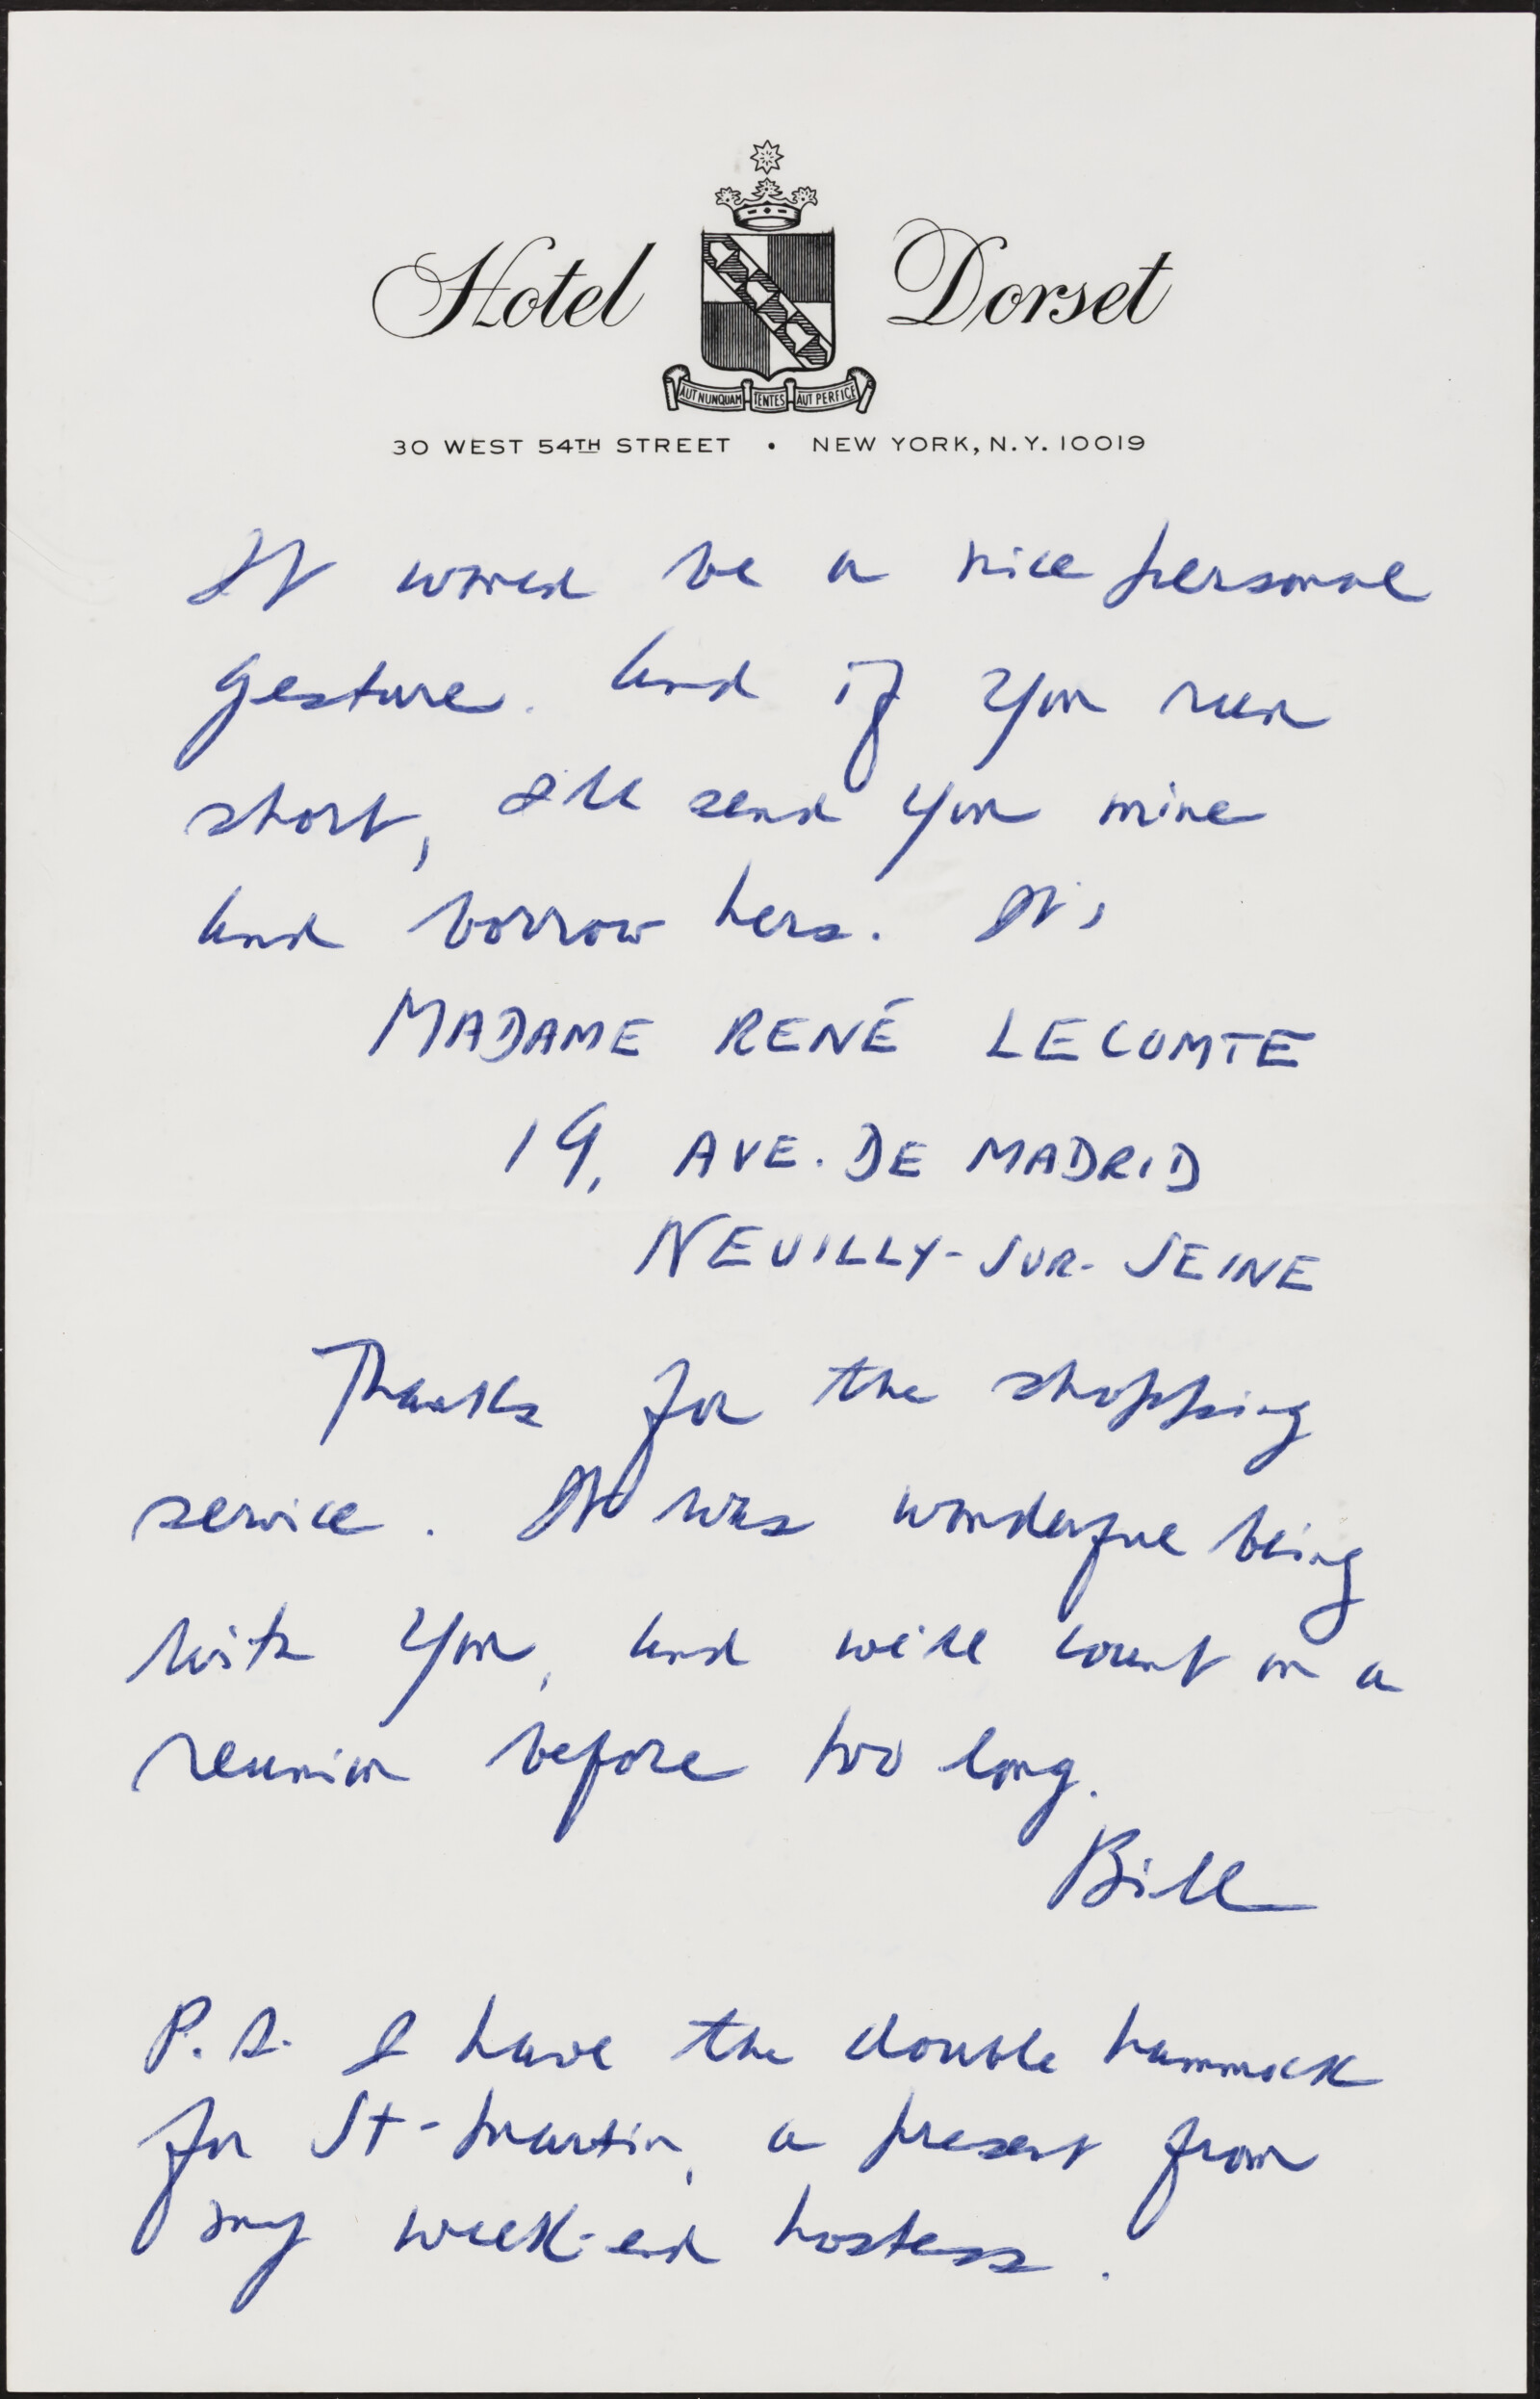 Hotel Dorset
AUT NUNQUAM TENTES AUT PERFICE
30 WEST 54TH STREET • NEW YORK, N.Y. 10019
It would be a nice personal
gesture. And if you run
short, I'll send you mine
and borrow hers. It's
MADAME RENÉ LECOMTE
19, AVE. DE MADRID
NEUILLY-SUR-SEINE
Thanks for the shopping
service. It was wonderful being
with you, and we'll count on a
reunion before too long.
Bill
P.S. I have the double hammock
for St-Martin, a present from
my week-end hostess.